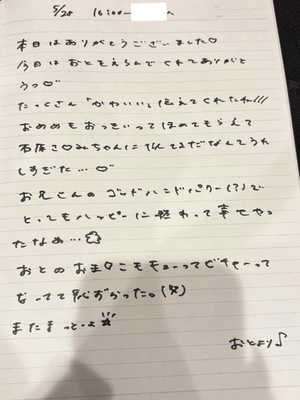 5/28 16:00~ へ
本日はありがとうございました♡
今日はおとをえらんでくれてありがと
うっ♡
たっくさん「かわいい」伝えてくれたね///
おめめもおっきいってほめてもらえて
石原さとみちゃんに似てるだなんてうれ
しすぎた…♡
お兄さんのゴッドハンドパワー(?)で
とってもハッピーに終わって幸せやっ
たなぁ…
おとのお
もキューってピチャーって
なってて恥ずかった。(笑)
またまっとーよ
おとより♪